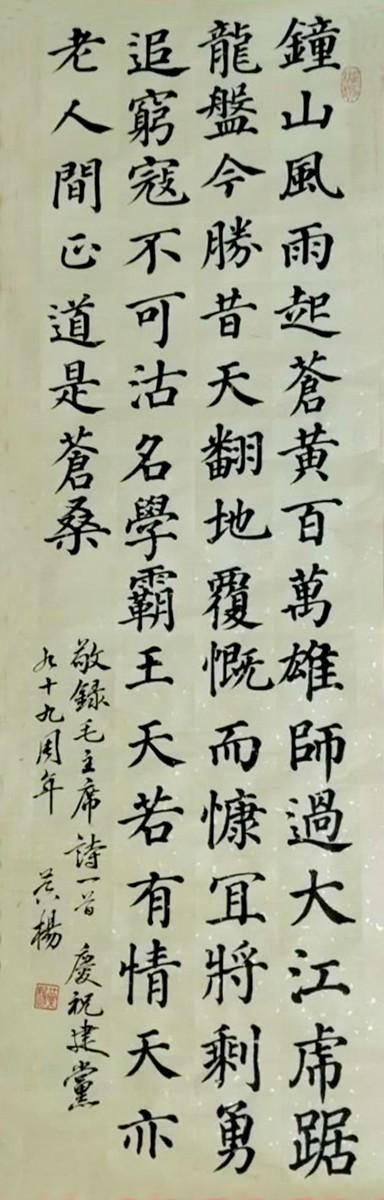 鐘山風雨起蒼黃百萬雄師過大江虎踞
龍盤今勝昔天翻地覆慨而慷冝將剩勇
追窮寇不可沽名學霸王天若有情天亦
老人間正道是蒼桑
敬録毛主席詩一首 慶祝建黨
九十九周年 楊